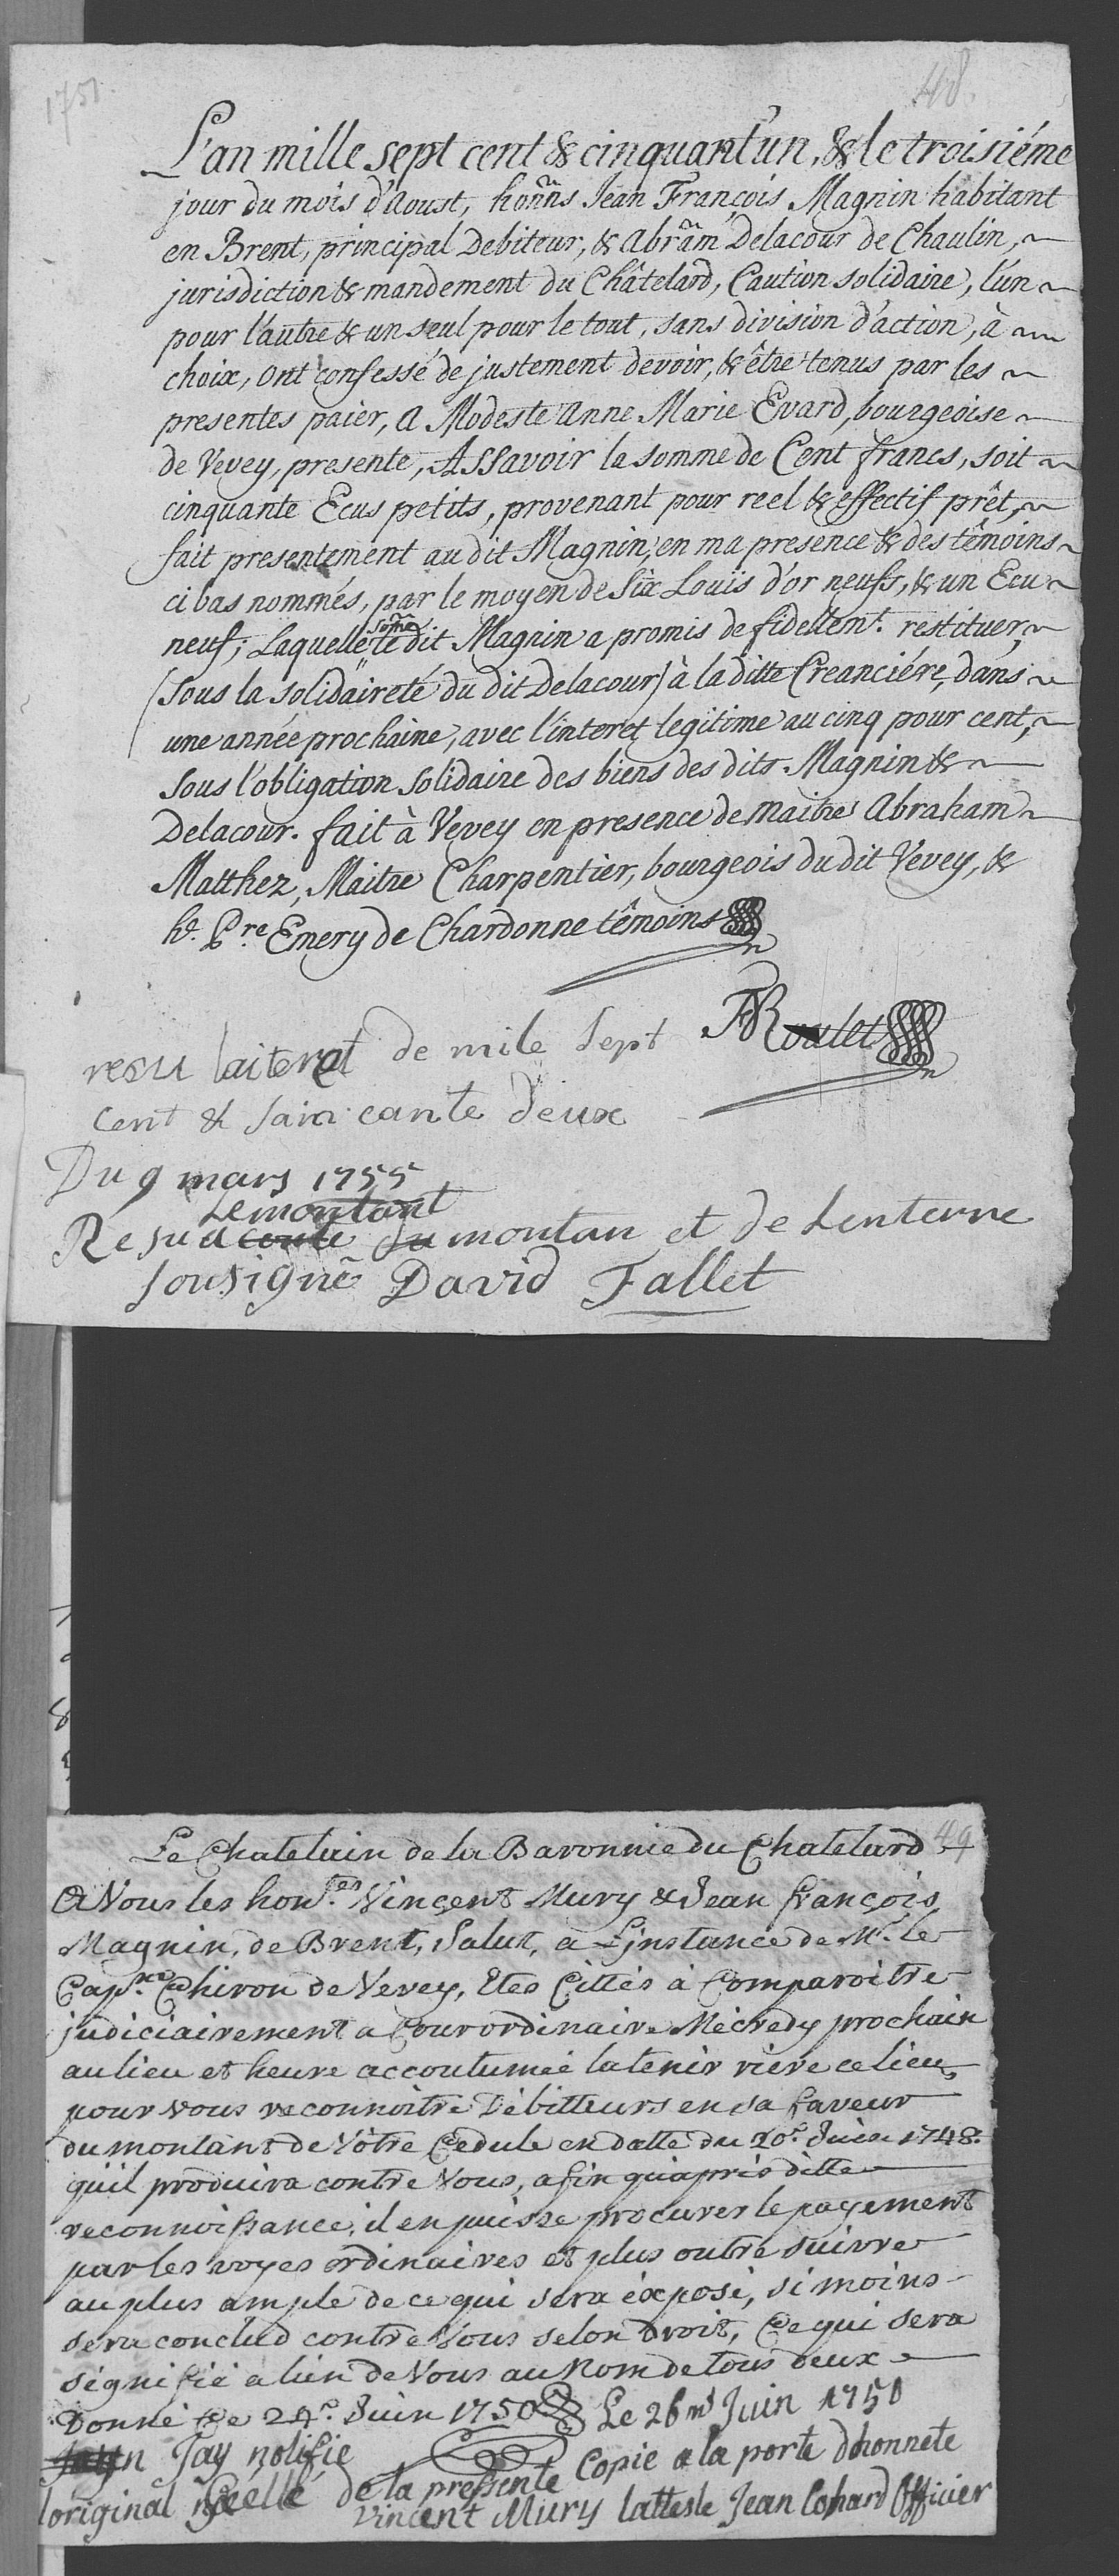 1751.
48.
L'an mille sept cent & cinquant'un, & le troisiéme
jour du mois d'Aoust, honñs Jean François Magnin habitant
en Brent, principal Debiteur, & Abrãm Delacour de Chaulin, ~
jurisdiction & mandement du Châtelard, Caution solidaire, l'un ~
pour l'autre & un seul pour le tout, sans division d'action, à ~
choix, ont confessé de justement devoir, & être tenus par les ~
presentes paier, a Modeste Anne Marie Evard, bourgeoise ~
de Vevey, presente, Assavoir la somme de Cent francs, soit ~
cinquante Ecus petits, provenant pour reel & effectif prêt, ~
fait presentement au dit Magnin, en ma presence & des têmoins ~
ci bas nommés, par le moyen de Six Louïs d'or neufs, & un Ecu ~
neuf; Laquelle sõme le dit Magnin a promis de fidellem.t restituer, ~
(sous la solidaireté du dit Delacour) à la ditte Creanciére, dans ~
une année prochaine, avec l'interet legitime au cinq pour cent, ~
sous l'obligation solidaire des biens des dits Magnin & ~
Delacour. fait à Vevey en presence de Maitre Abraham ~
Matthez, Maitre Charpentier, bourgeois du dit Vevey, &
h.e P.re Emery de Chardonne têmoins
Roulet
resu laiterat de mile sept
cent & sain cante deux
Du 9 mars 1755
Le montant
Resu a conte du montan et de Lenterre
sousigné David Fallet
49
Le Chatelain de la Baronnie du Chatelard
A Vous les hon.es Vinçent Mury & Jean françois
Magnin, de Brent, Salut, à L'jnstance de Mr. le
Cap.ne Chiron de Vevey, Etes Cittés à Comparoitre
judiciairement a Cour ordinaire Mécredy prochain
au lieu et heure accoutumée la tenir riere ce lieu
pour vous reconnoitre Débitteurs en sa faveur
du montant de Vôtre Cedule en datte du 20e. Juin 1748.
qu'il produira contre Vous, afin qu'aprés ditte
reconnoissance, il en puisse procurer le payement
par les voyes ordinaires et plus outre suivre
au plus ample de ce qui sera éxposé, si moins
sera conclud contre Vous selon droit, Ce qui sera
signifié a l'un de Vous au Nom de tous deux
Donné ce 24e. Juin 1750 Le 26me Juin 1750
Jay notifie
loriginal Scellé de la pressente Copie a la porte dhonnete
Vincent Mury latteste Jean Cohard Officier